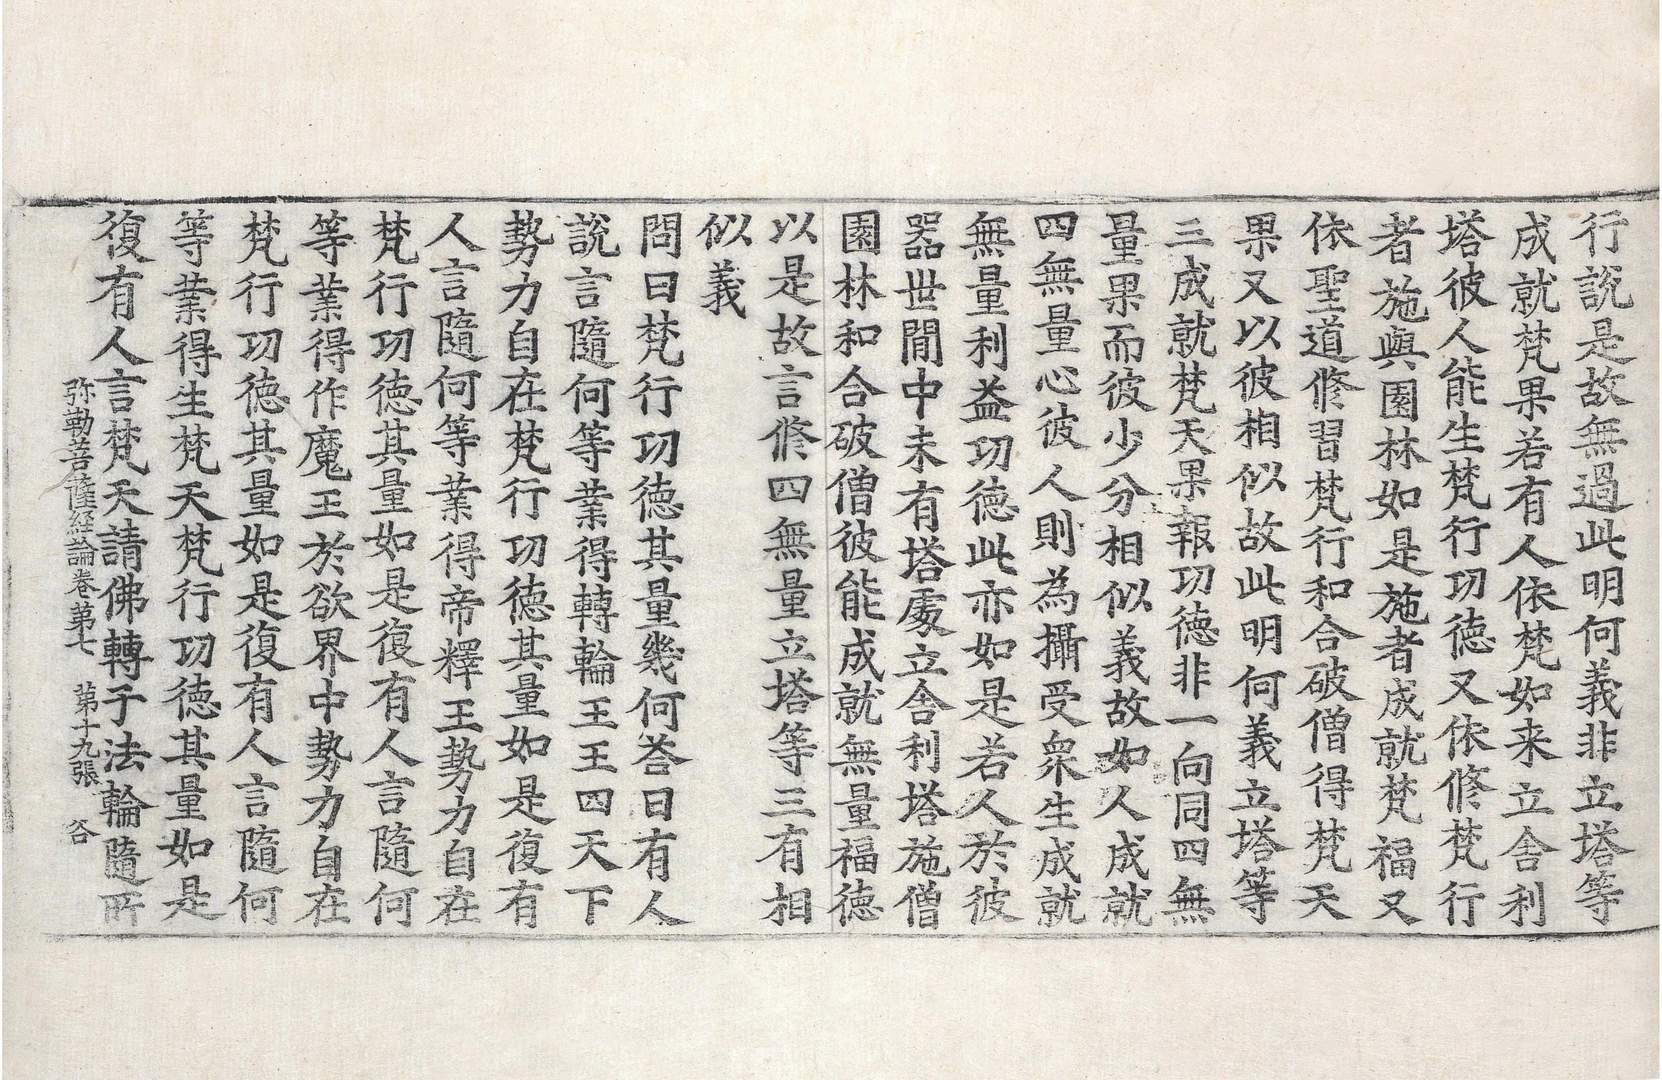 行說是故無過此明何義非立塔等
成就梵果若有人依梵如来立舍利
塔彼人能生梵行功德又依修梵行
者施與園林如是施者成就梵福又
依聖道修習梵行和合破僧得梵天
果又以彼相似故此明何義立塔等
三成就梵天果報功德非一向同四無
量果而彼少分相似義故如人成就
四無量心彼人則為攝受衆生成就
無量利益功德此亦如是若人於彼
器世間中未有塔處立舍利塔施僧
園林和合破僧彼能成就無量福德
以是故言修四無量立塔等三有相
似義
問曰梵行功德其量幾何荅曰有人
說言隨何等業得轉輪王王四天下
勢力自在梵行功德其量如是復有
人言隨何等業得帝釋王勢力自在
梵行功德其量如是復有人言隨何
等業得作魔王於欲界中勢力自在
梵行功德其量如是復有人言隨何
等業得生梵天梵行功德其量如是
復有人言梵天請佛轉于法輪隨所
弥勒菩薩経論卷第七 第十九張 㕣